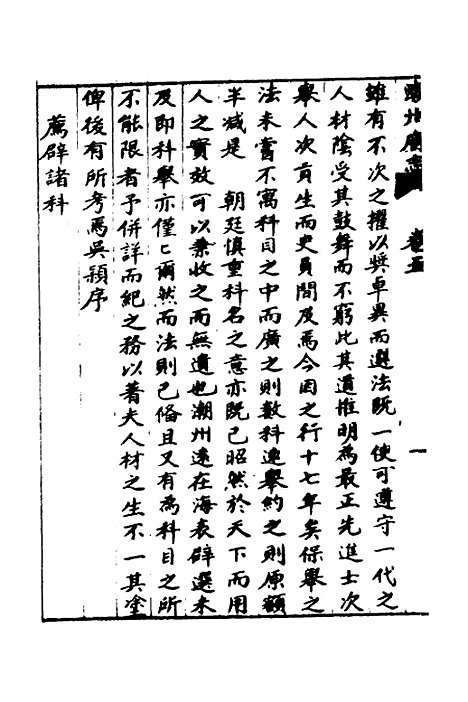 潮州府志
卷五
一
雖有不次之擢以奬卓異而選法既一使可遵守一代之
人材陰受其鼓舞而不窮此其道惟明為最正先進士次
舉人次貢生而吏員間及焉今因之行十七年矣保舉之
法未嘗不寓科目之中而廣之則數科連舉約之則原額
半减是　朝廷慎重科名之意亦既已昭然於天下而用
人之實效可以兼收之而無遺也潮州遠在海表辟選未
及即科舉亦僅〻爾然而法則已偹且又有為科目之所
不能限者予併詳而紀之務以著夫人材之生不一其塗
俾後有所考焉吳頴序
薦辟諸科